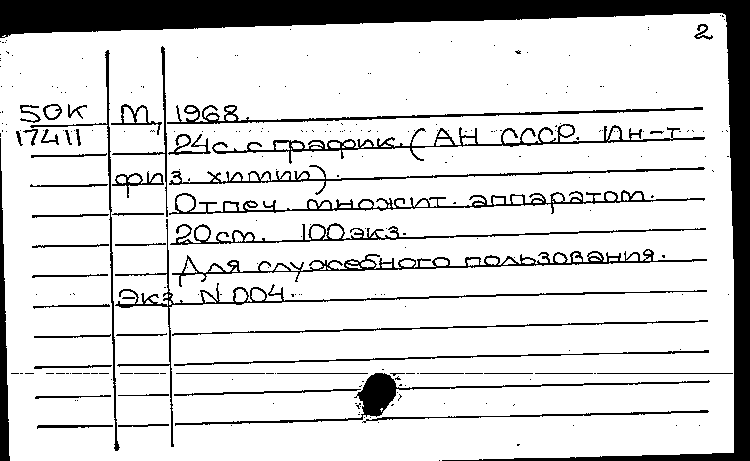 2
50К М, 1968.
17411 24с. с график. (АН СССР. Ин-т
физ. химии).
Отпеч. множит. аппаратом.
20см. 100экз.
Для служебного пользования.
Экз. N 004.